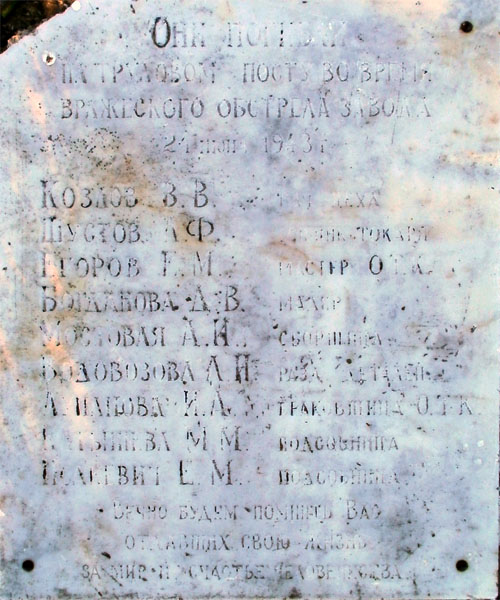 Они погибли
на трудовом посту во время
вражеского обстрела завода
1943 г
Козлов В. В. цеха
Шустов Ф.
Егоров Г. М. мастер О.Т.К.
Богданова А. В. маляр
Мостовая А. И. сборщица
Водовозова А. И.
И. А. браковщица О.Т.К.
М. М. подсобница
Е. М. подсобница
Вечно будем помнить Вас
отдавших свою жизнь
за мир и счастье человечества